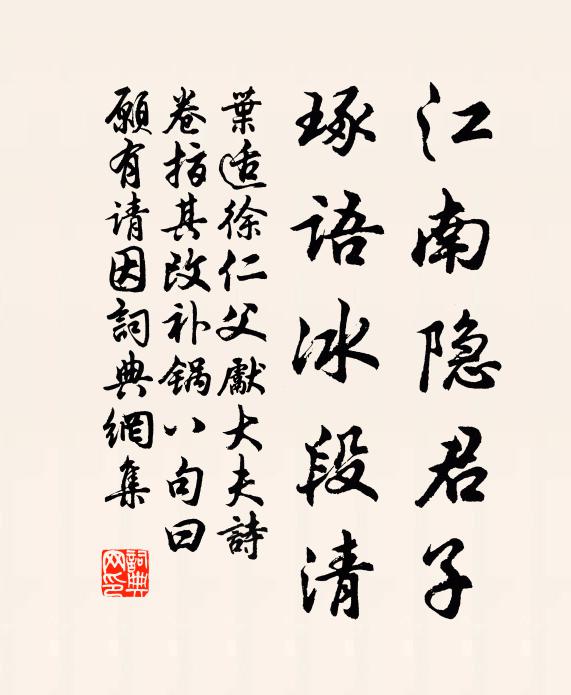 江南隐君子
琢语冰段清
葉适徐仁父獻大夫詩
卷指其改补锅八句曰
願有请因詞典網集
詞典网印